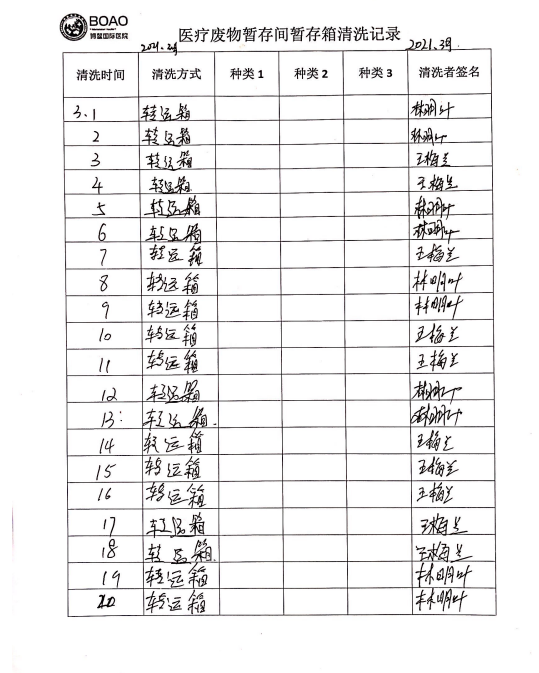 BOAO
博鳌国际医院
医疗废物暂存间暂存箱清洗记录
2021.3月 2021.3月.
清洗时间 清洗方式 种类 1 种类 2 种类 3 清洗者签名
3.1 转运箱 林明叶
2 转运箱 林明叶
3 转运箱 王梅兰
4 转运箱 王梅兰
5 转运箱 林明叶
6 转运箱 林明叶
7 转运箱 王梅兰
8 转运箱 林明叶
9 转运箱 林明叶
10 转运箱 王梅兰
11 转运箱 王梅兰
12 转运箱 林明叶
13: 转运箱. 林明叶
14 转运箱 王梅兰
15 转运箱 王梅兰
16 转运箱 王梅兰
17 转运箱 王梅兰
18 转运箱. 王梅兰
19 转运箱 林明叶
20 转运箱 林明叶